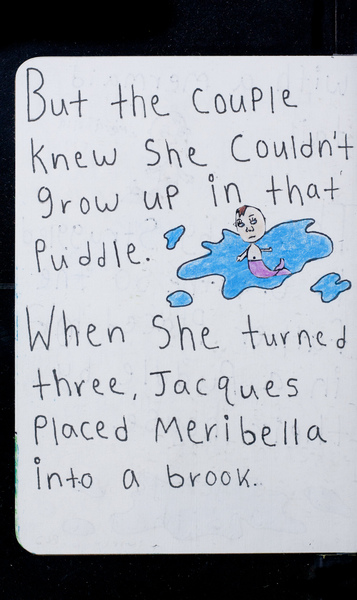 But the couple
knew She Couldn't
grow up in that
puddle.
When She turned
three, Jacques
placed Meribella
into a brook.